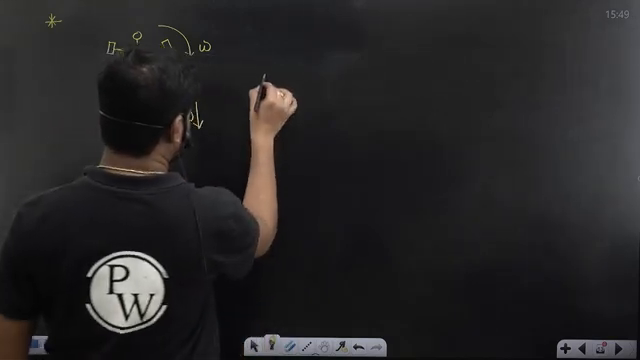 15:49
ω
P
W